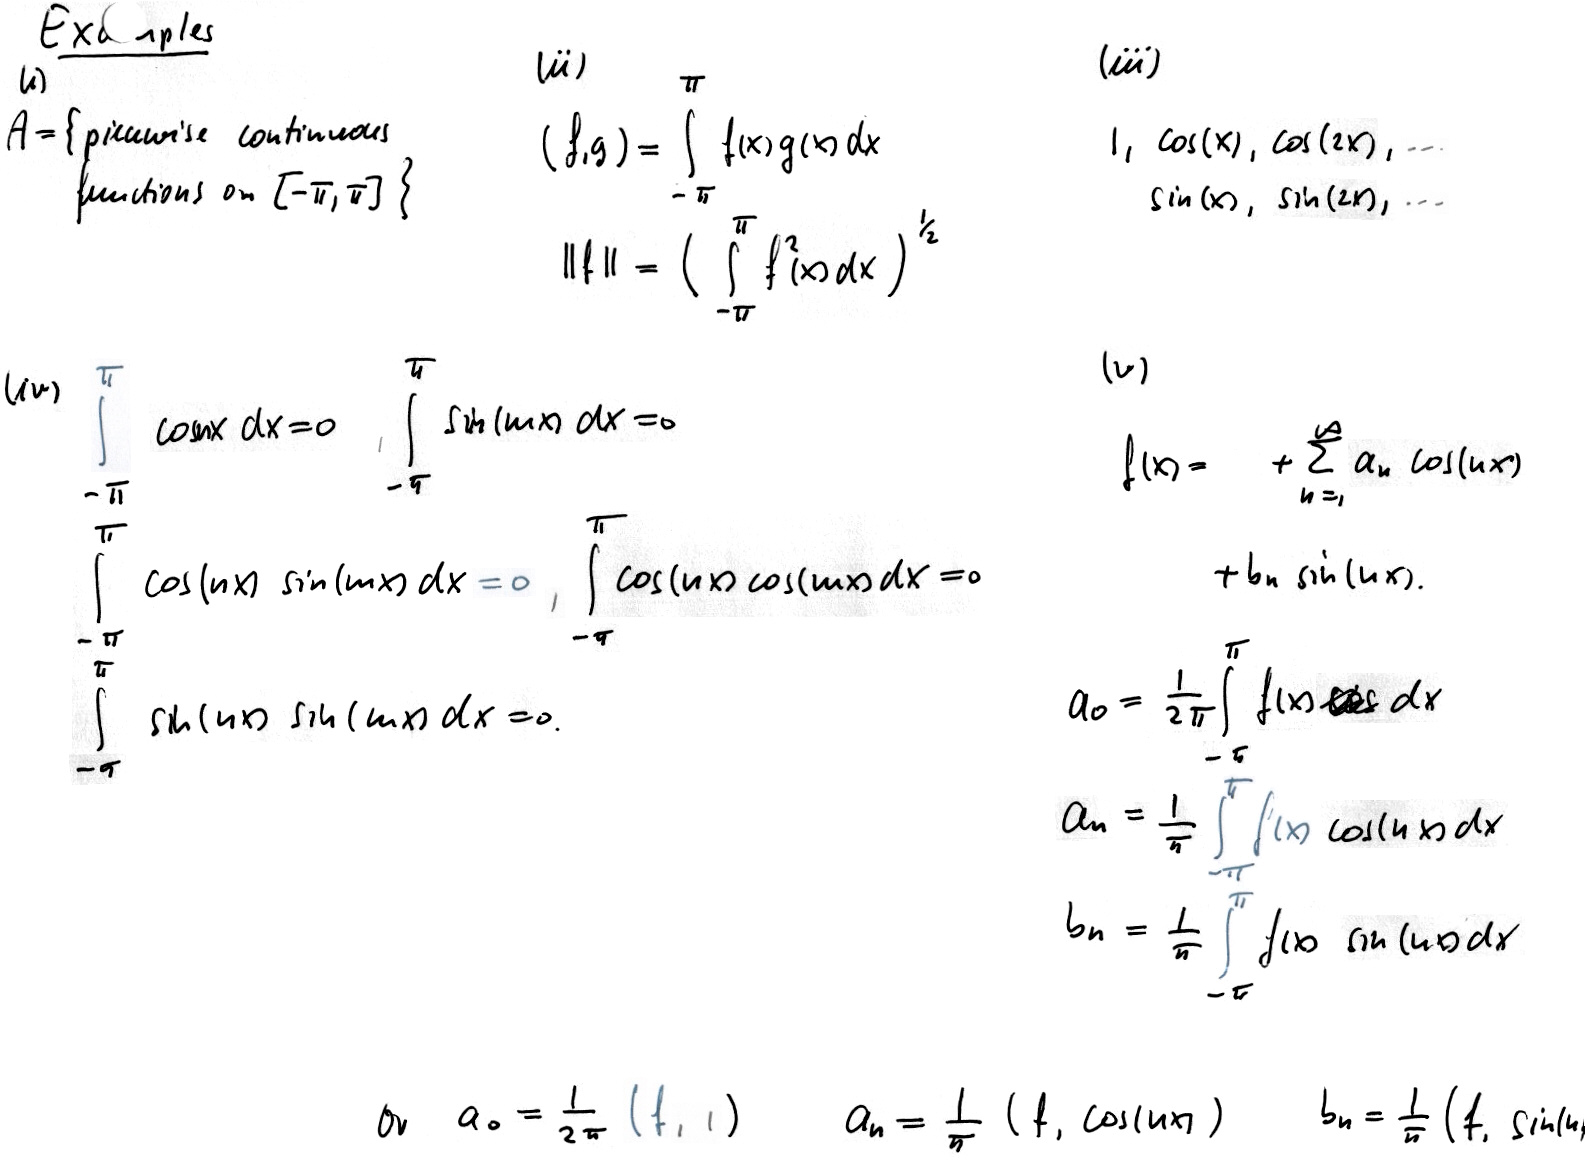 Examples
(i)
A = { piecewise continuous
functions on [-π, π] }
(ii)
(f,g) = ∫_{-π}^{π} f(x) g(x) dx
||f|| = ( ∫_{-π}^{π} f²(x) dx )^{1/2}
(iii)
1, cos(x), cos(2x), ...
sin(x), sin(2x), ...
(iv) ∫_{-π}^{π} cosnx dx = 0 , ∫_{-π}^{π} sin(mx) dx = 0
∫_{-π}^{π} cos(nx) sin(mx) dx = 0 , ∫_{-π}^{π} cos(nx) cos(mx) dx = 0
∫_{-π}^{π} sin(nx) sin(mx) dx = 0.
(v)
f(x) = + ∑_{n=1}^{∞} a_n cos(nx)
+ b_n sin(nx).
a_0 = 1/2π ∫_{-π}^{π} f(x) dx
a_n = 1/π ∫_{-π}^{π} f(x) cos(nx) dx
b_n = 1/π ∫_{-π}^{π} f(x) sin(nx) dx
or a_0 = 1/2π (f, 1) a_n = 1/π (f, cos(nx)) b_n = 1/π (f, sin(n